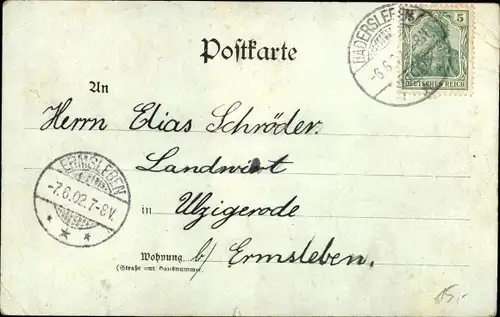 BADERSLEBEN
-6.6.
5
DEUTSCHES REICH
Postkarte
An
Herrn Elias Schröder.
Landwirt
in Ulzigerode
Wohnung b/ Ermsleben.
(Straße und Hausnummer)
ERMSLEBEN
-7.6.02.7-8V.
15,-